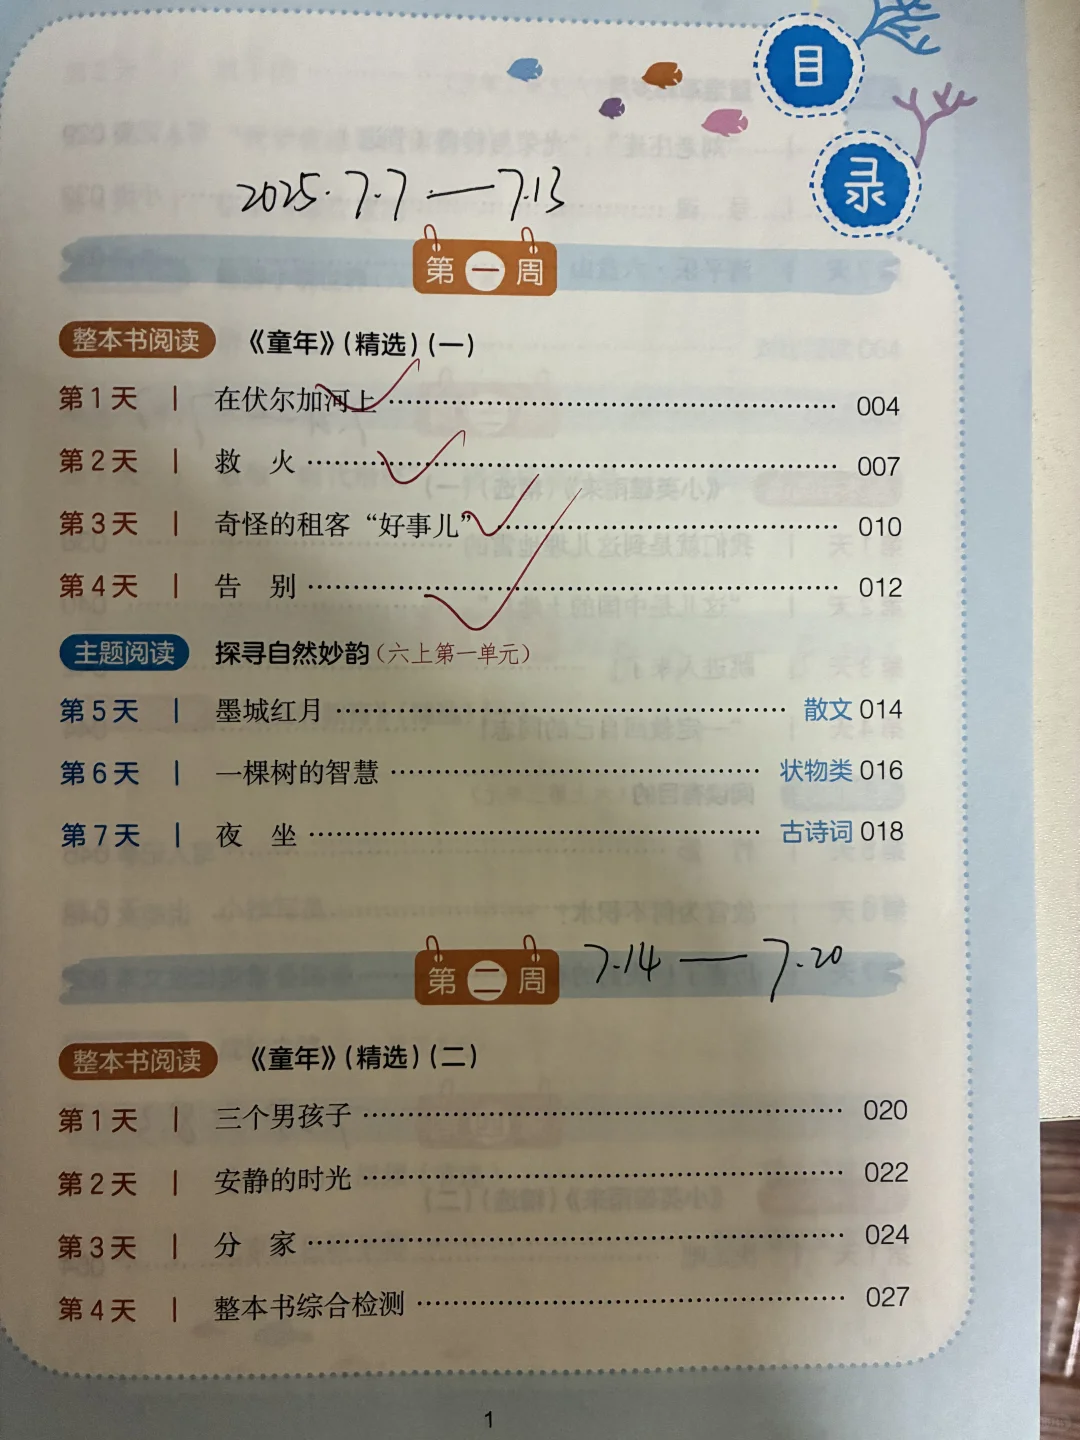 目
录
2025.7.7.—7.13
第一周
整本书阅读 《童年》(精选)(一)
第1天 | 在伏尔加河上 …… 004
第2天 | 救 火 …… 007
第3天 | 奇怪的租客“好事儿” …… 010
第4天 | 告 别 …… 012
主题阅读 探寻自然妙韵(六上第一单元)
第5天 | 墨城红月 …… 散文 014
第6天 | 一棵树的智慧 …… 状物类 016
第7天 | 夜 坐 …… 古诗词 018
第二周 7.14 — 7.20
整本书阅读 《童年》(精选)(二)
第1天 | 三个男孩子 …… 020
第2天 | 安静的时光 …… 022
第3天 | 分 家 …… 024
第4天 | 整本书综合检测 …… 027
1